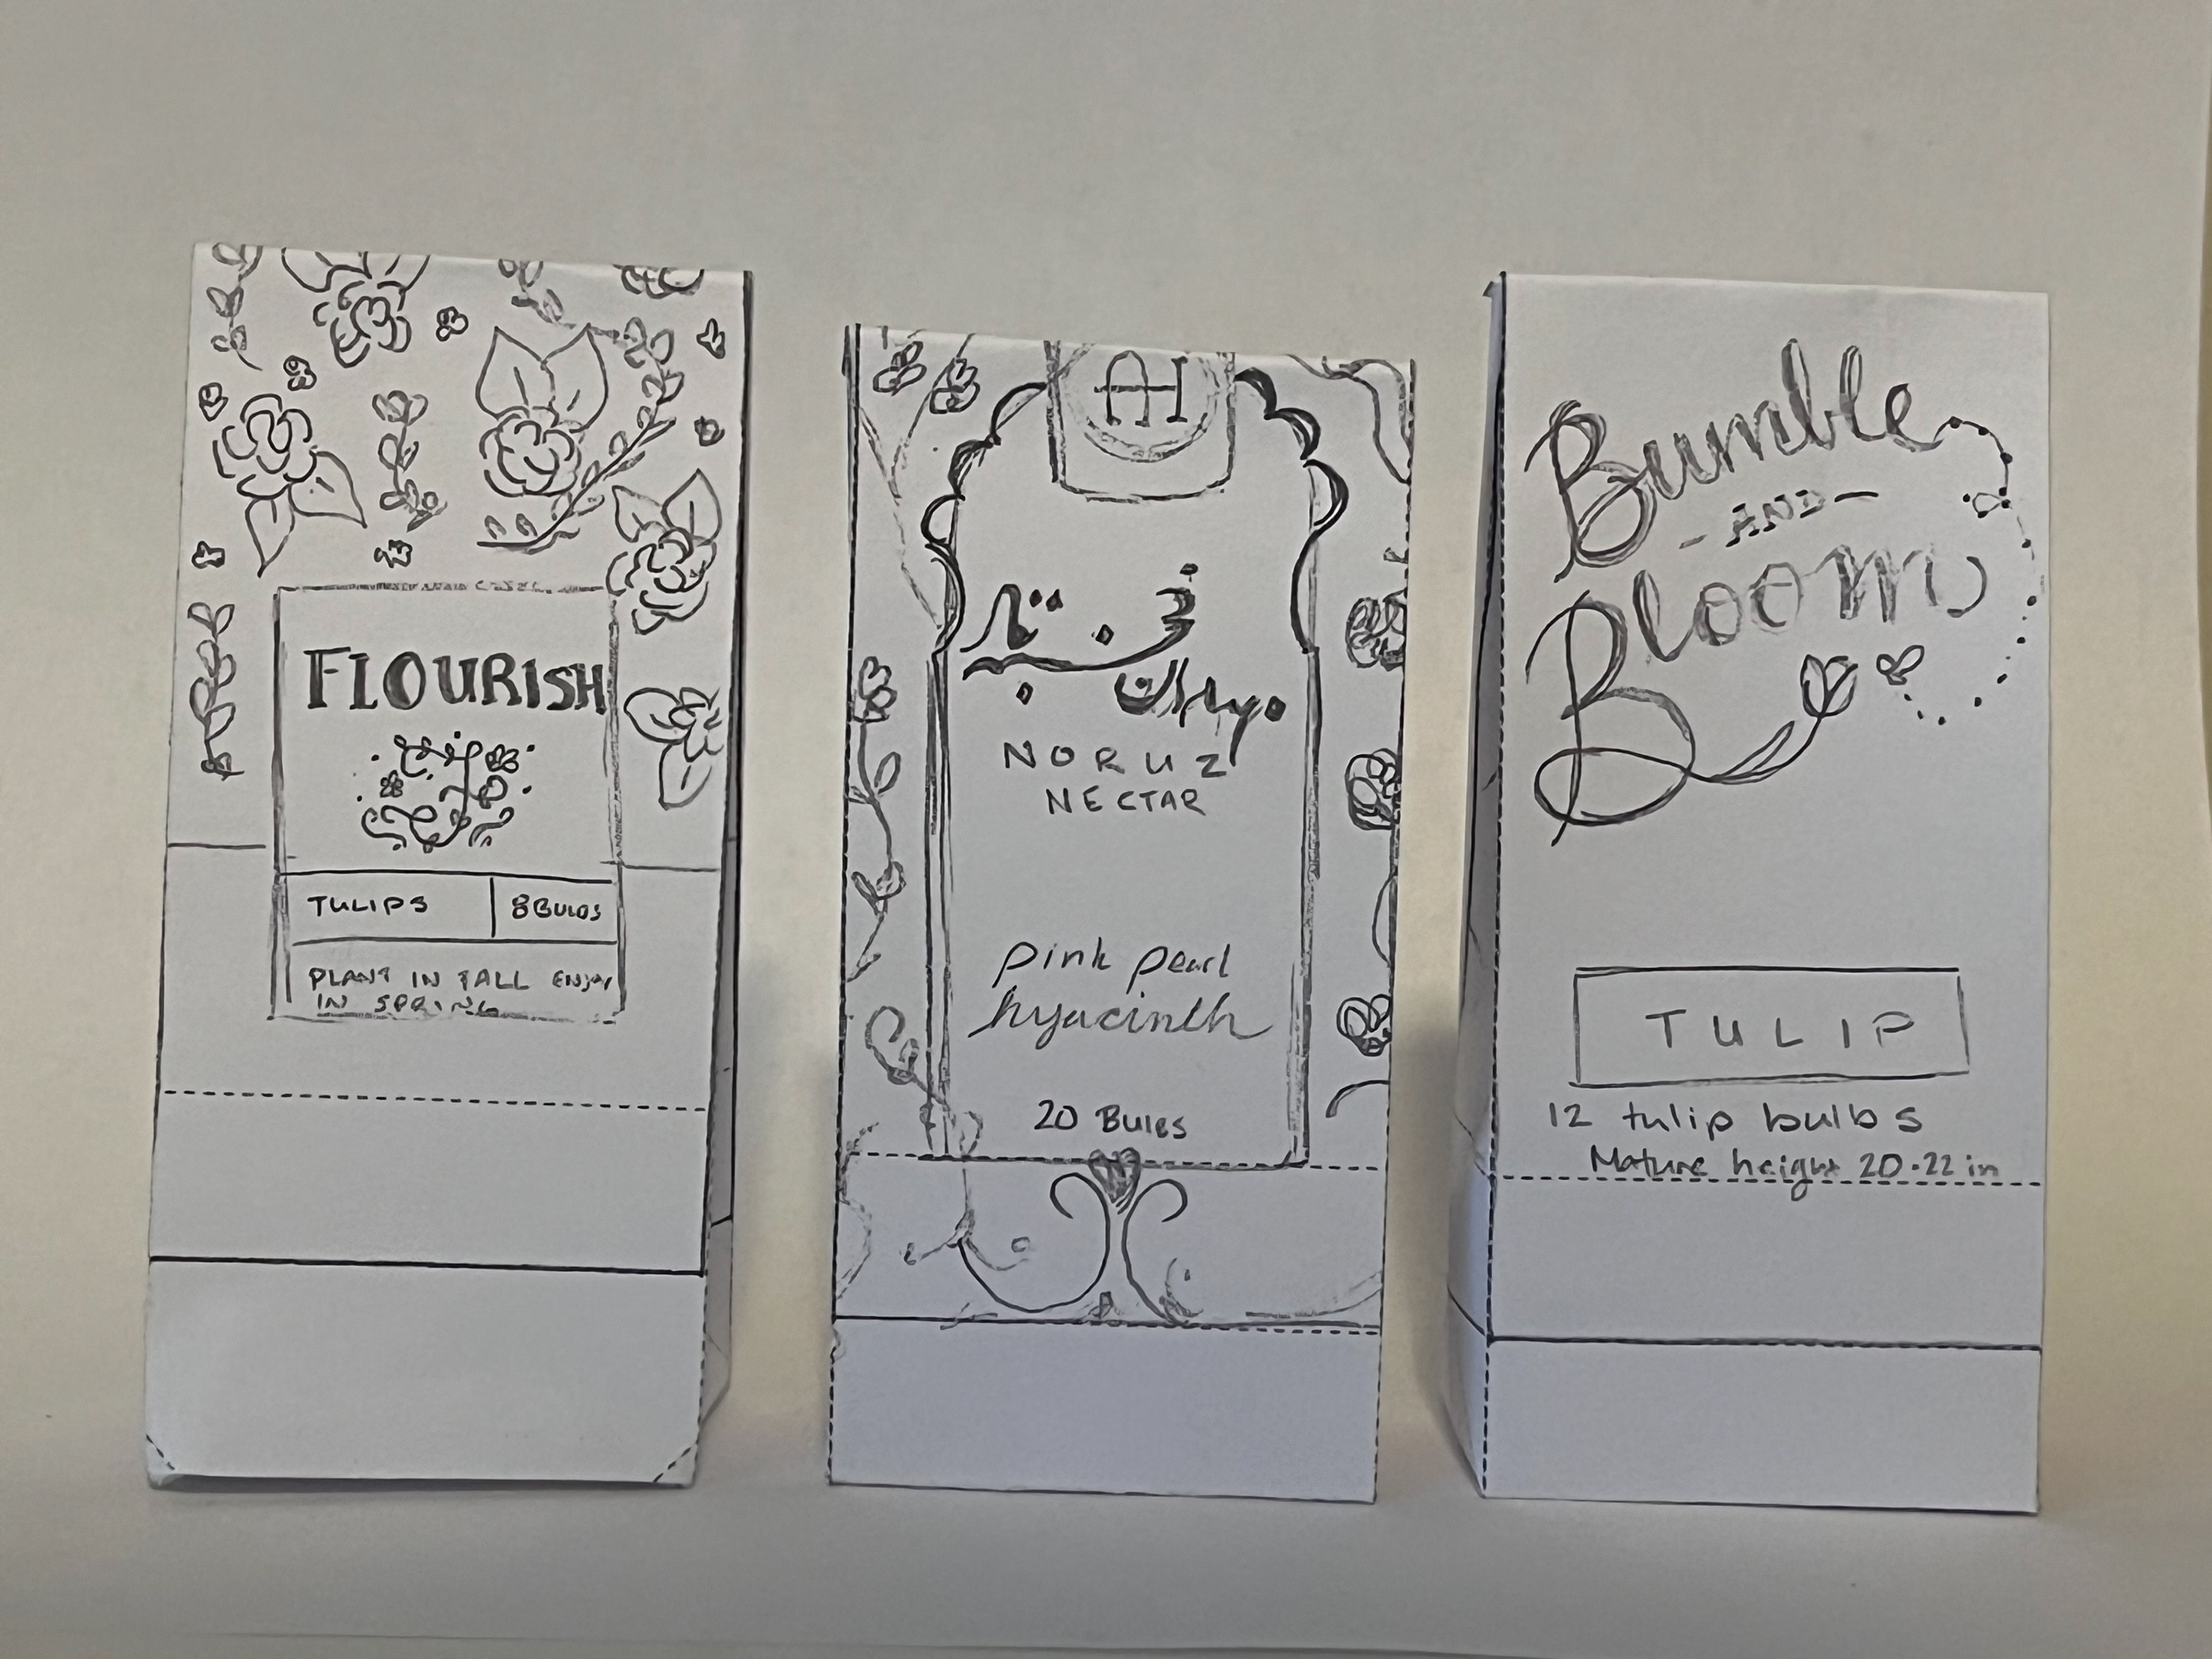 FLOURISH
TULIPS
8 BULBS
PLANT IN FALL ENJOY
IN SPRING
AH
NORUZ
NECTAR
pink pearl
hyacinth
20 BULBS
Bumble
- AND -
Bloom
TULIP
12 tulip bulbs
Mature height 20-22 in